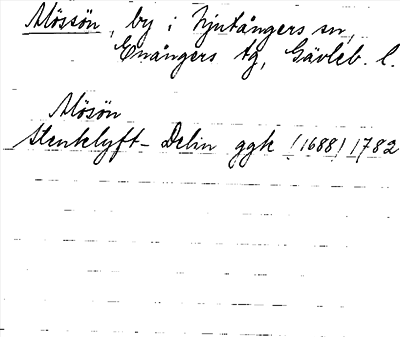 Mössön, by i Njutångers sn,
Enångers tg, Gävleb. l.
Mösön
Stenklyft - Delin ggk (1688) 1782